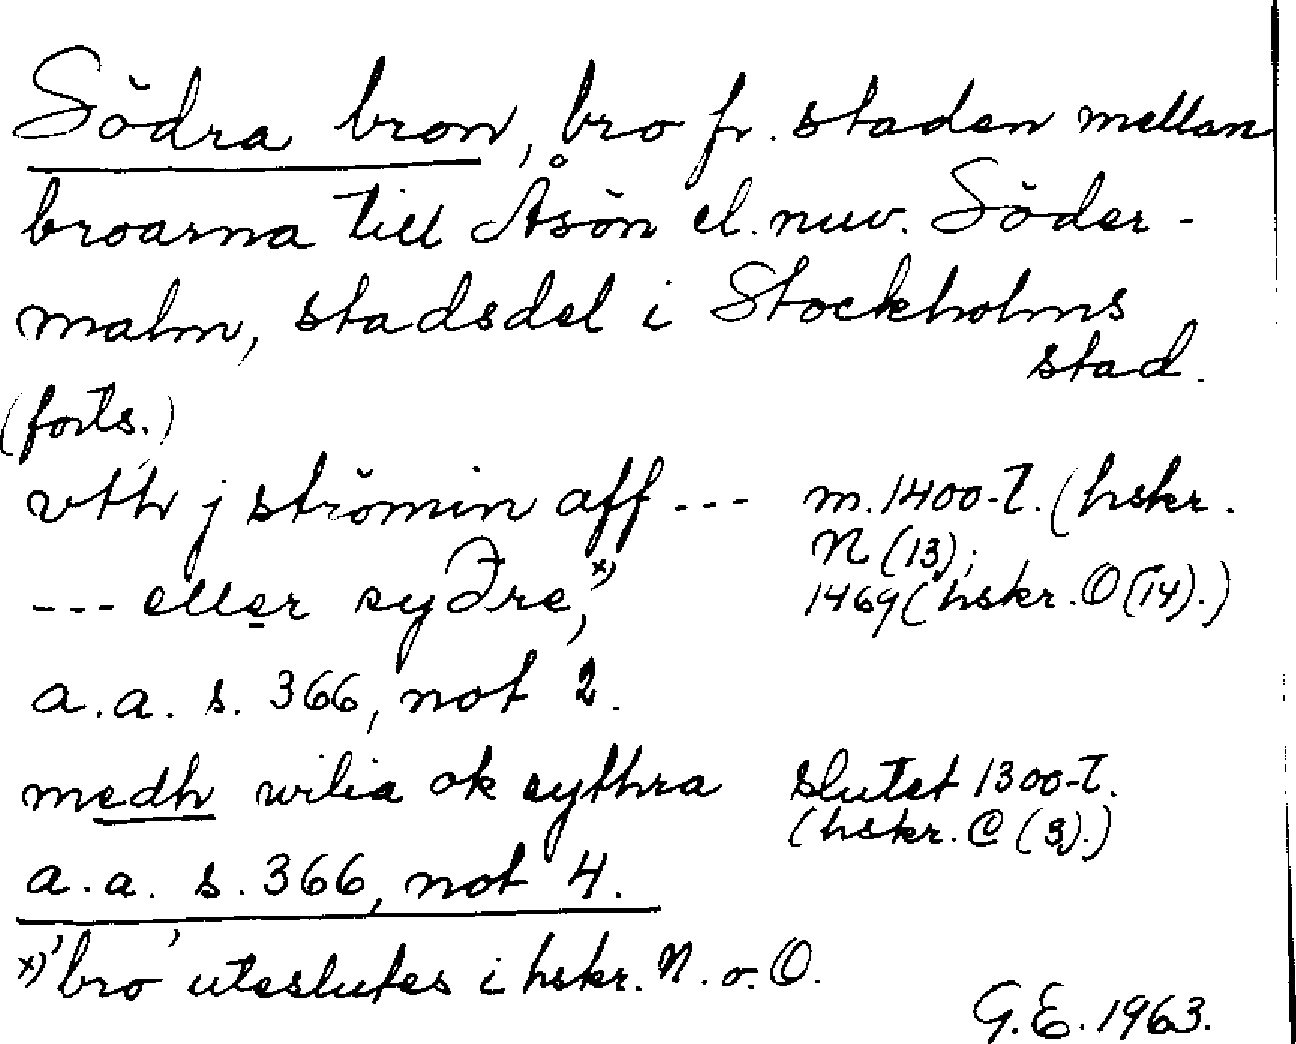 Södra bron, bro fr. staden mellan
broarna till Åsön el. nuv. Söder-
malm, stadsdel i Stockholms
stad.
(forts.)
vth j strömin aff --- m. 1400-t. (hskr.
N (13);
--- eller syðre,x) 1469 (hskr. O (14).)
a.a. s. 366, not 2.
medh wilia ok sythra slutet 1300-t.
(hskr. C (3).)
a.a. s. 366, not 4.
x) 'bro' uteslutes i hskr. N. o. O.
G.E. 1963.